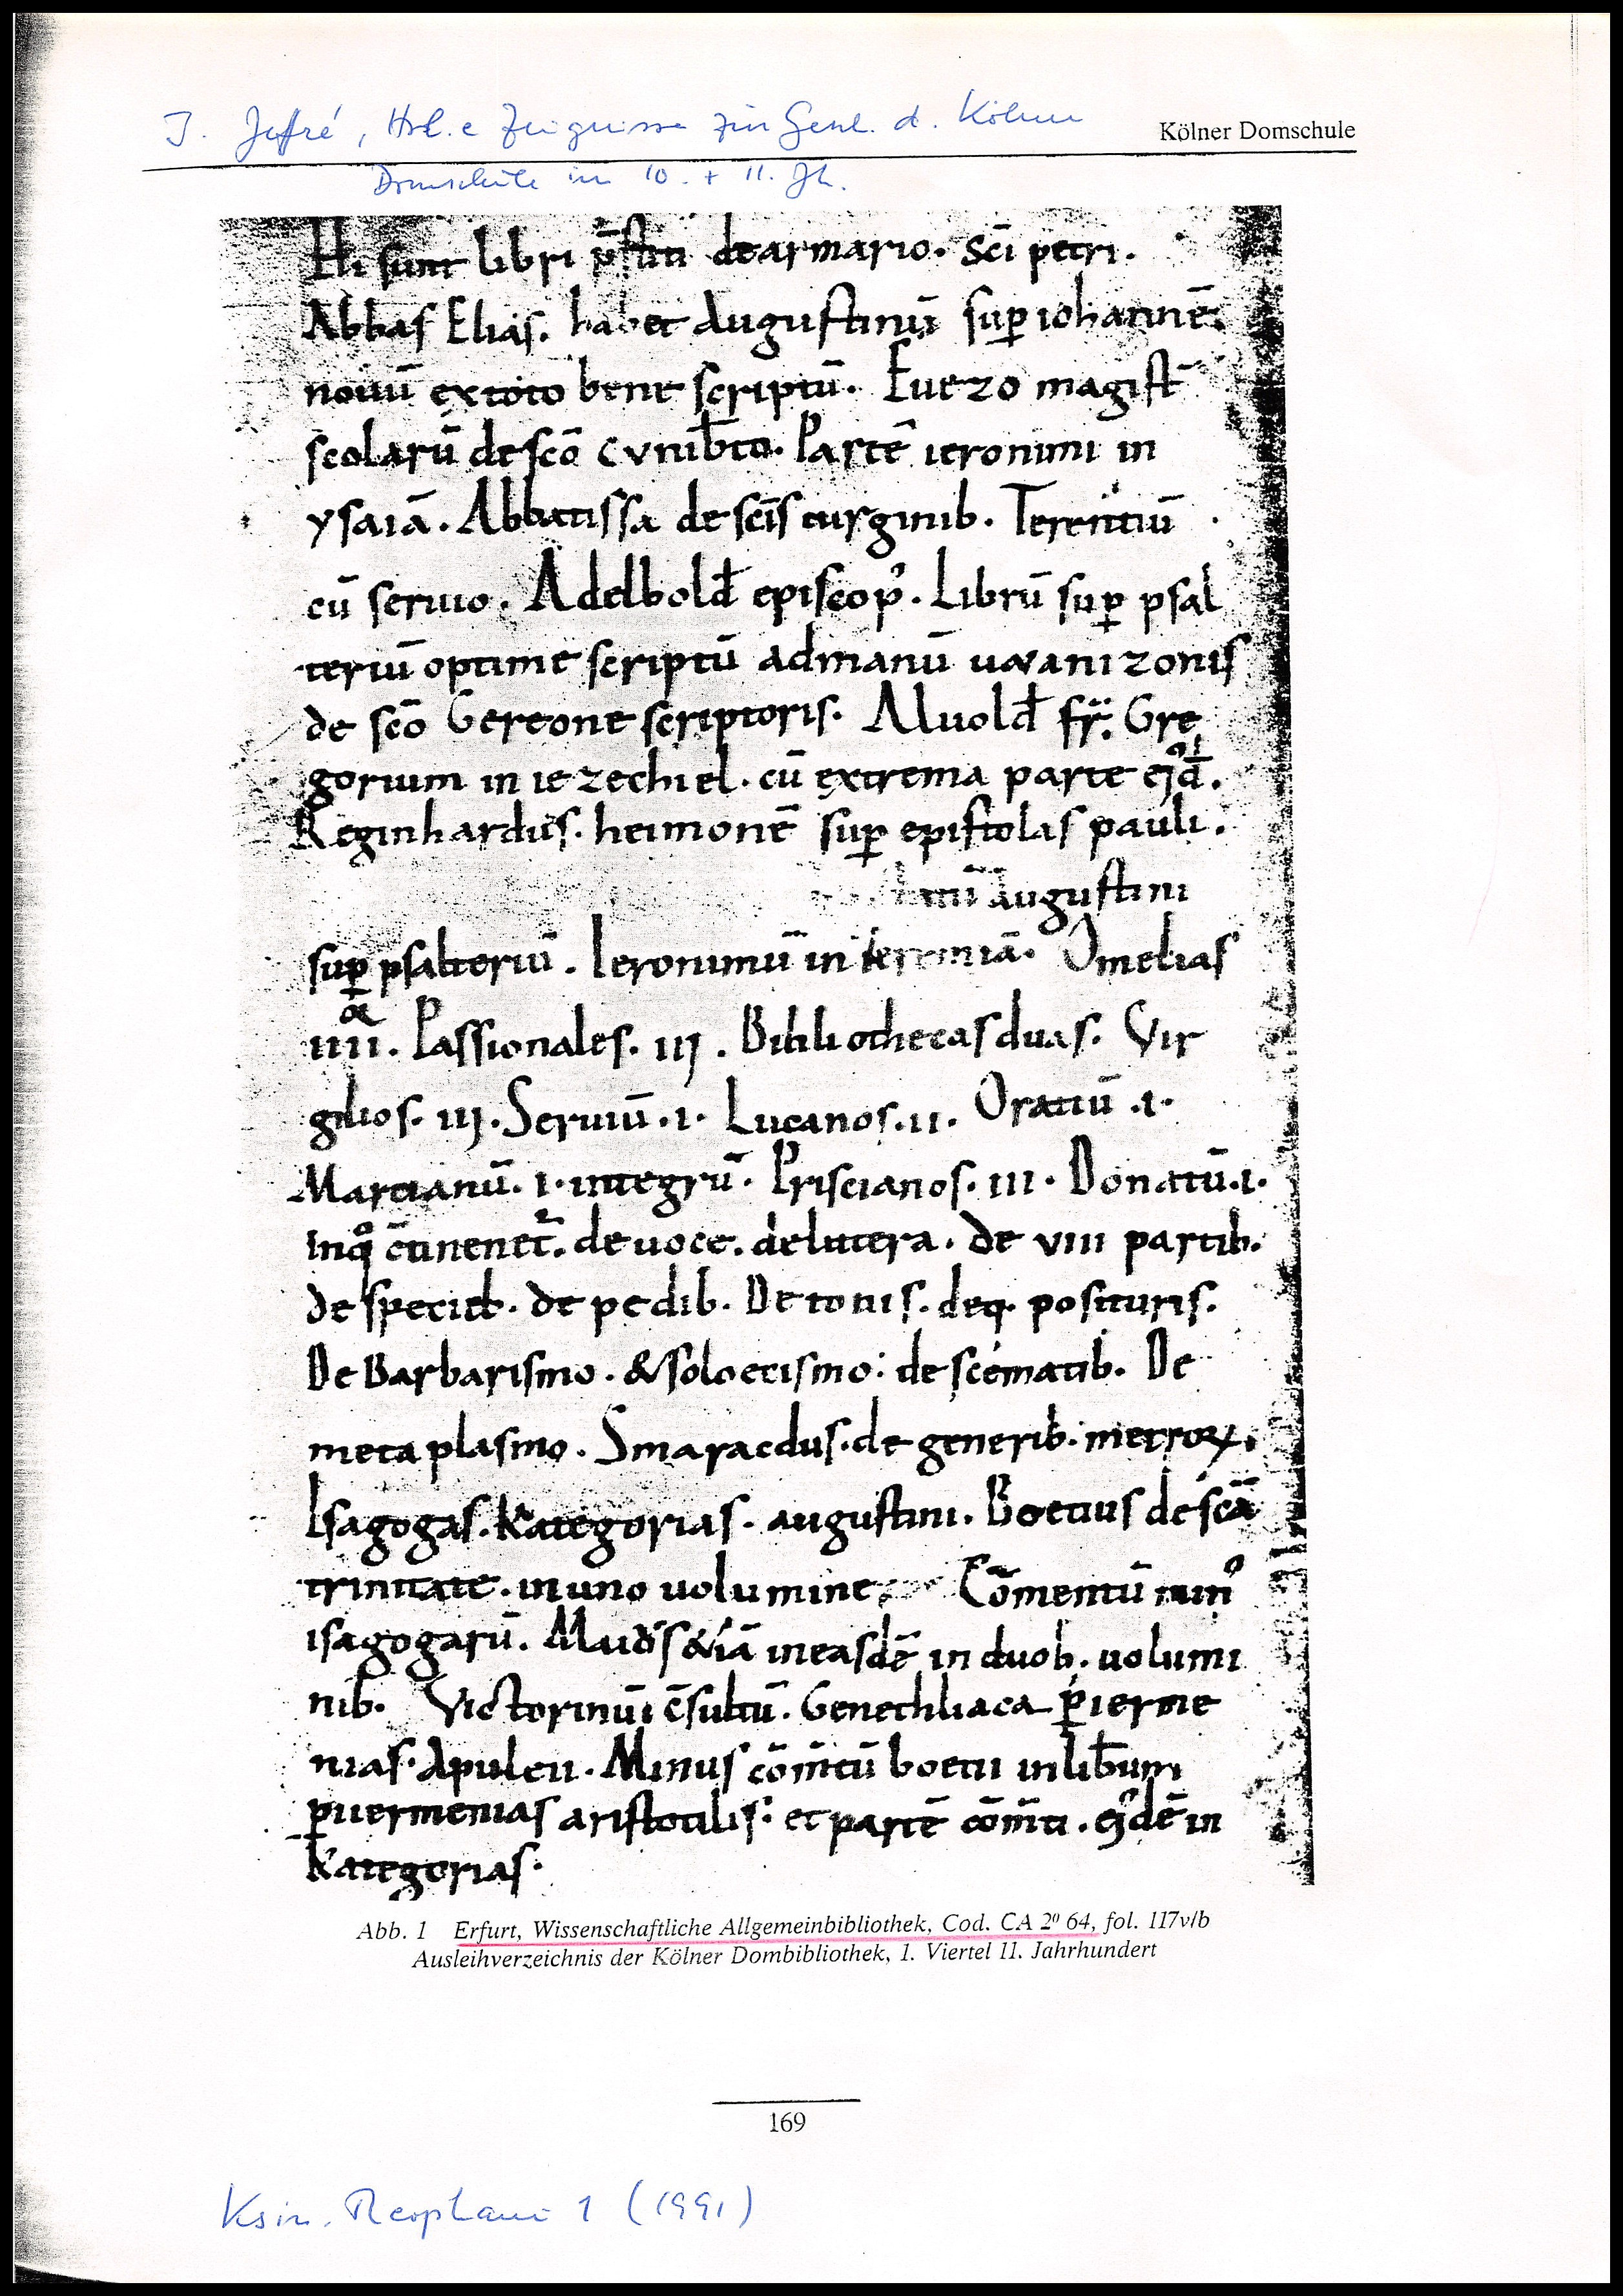 I. Jeffré, Hsl.e Zeugnisse zur Gesch. d. Kölner
Kölner Domschule
Domschule im 10. + 11. Jh.
Hi sunt libri p̄stiti de armario. Sc̄i petri.
Abbas Elias. habet Augustinū sup̲ iohannē.
nouū ex toto bene scriptū. Euezo magist̄
scolarū de sc̄o cunib̄to. Partē ieronimi in
ysaiā. Abbatissa de sc̄is uirginib. Terentiū
cū seruo. Adelbold̄ episcop᾿. Librū sup̲ psal
teriū optime scriptū ad manū uuanizonis
de sc̄o Gereone scriptoris. Aluold̄ fr̄. Gre
gorium in iezechiel. cū extrema parte ej᾿d̄.
Reginhardus. heimonē sup̲ epistolas pauli.
augustini
sup̲ psalteriū. Ieronimū in ieremiā. Omelias
iiii. Passionales. iij. Bibliothecas duas. Vir
gilios. iij. Seruiū. i. Lucanos. ii. Oratiū. i.
Martianū. i. integrū. Priscianos. iii. Donatū. i.
In q̊ c̄tinenet᷑. de uoce. de littera. de viii partib.
De specieb. de pedib. De tonis. deq. posituris.
De Barbarismo. & soloecismo. de scematib. De
metaplasmo. Smaracdus. de generib. metroꝝ.
Isagogas. Kategorias. augustini. Boetius de sc̄a
trinitate. in uno uolumine. Cōmentū min᾿
isagogarū. Mai᾿ & iā in easdē in duob. uolumi
nib. Victorinū c̄sultū. Genethliaca p̲ierme
nias. Apuleii. Minus cōm̄tū boetii in lib̄um
p̲iiermenias aristotilis. et partē cōm̄ti. ej᾿dē in
Kategorias.
Abb. 1 Erfurt, Wissenschaftliche Allgemeinbibliothek, Cod. CA 2⁰ 64, fol. 117v/b
Ausleihverzeichnis der Kölner Dombibliothek, 1. Viertel 11. Jahrhundert
169
Ksin. Theophanu 1 (1991)